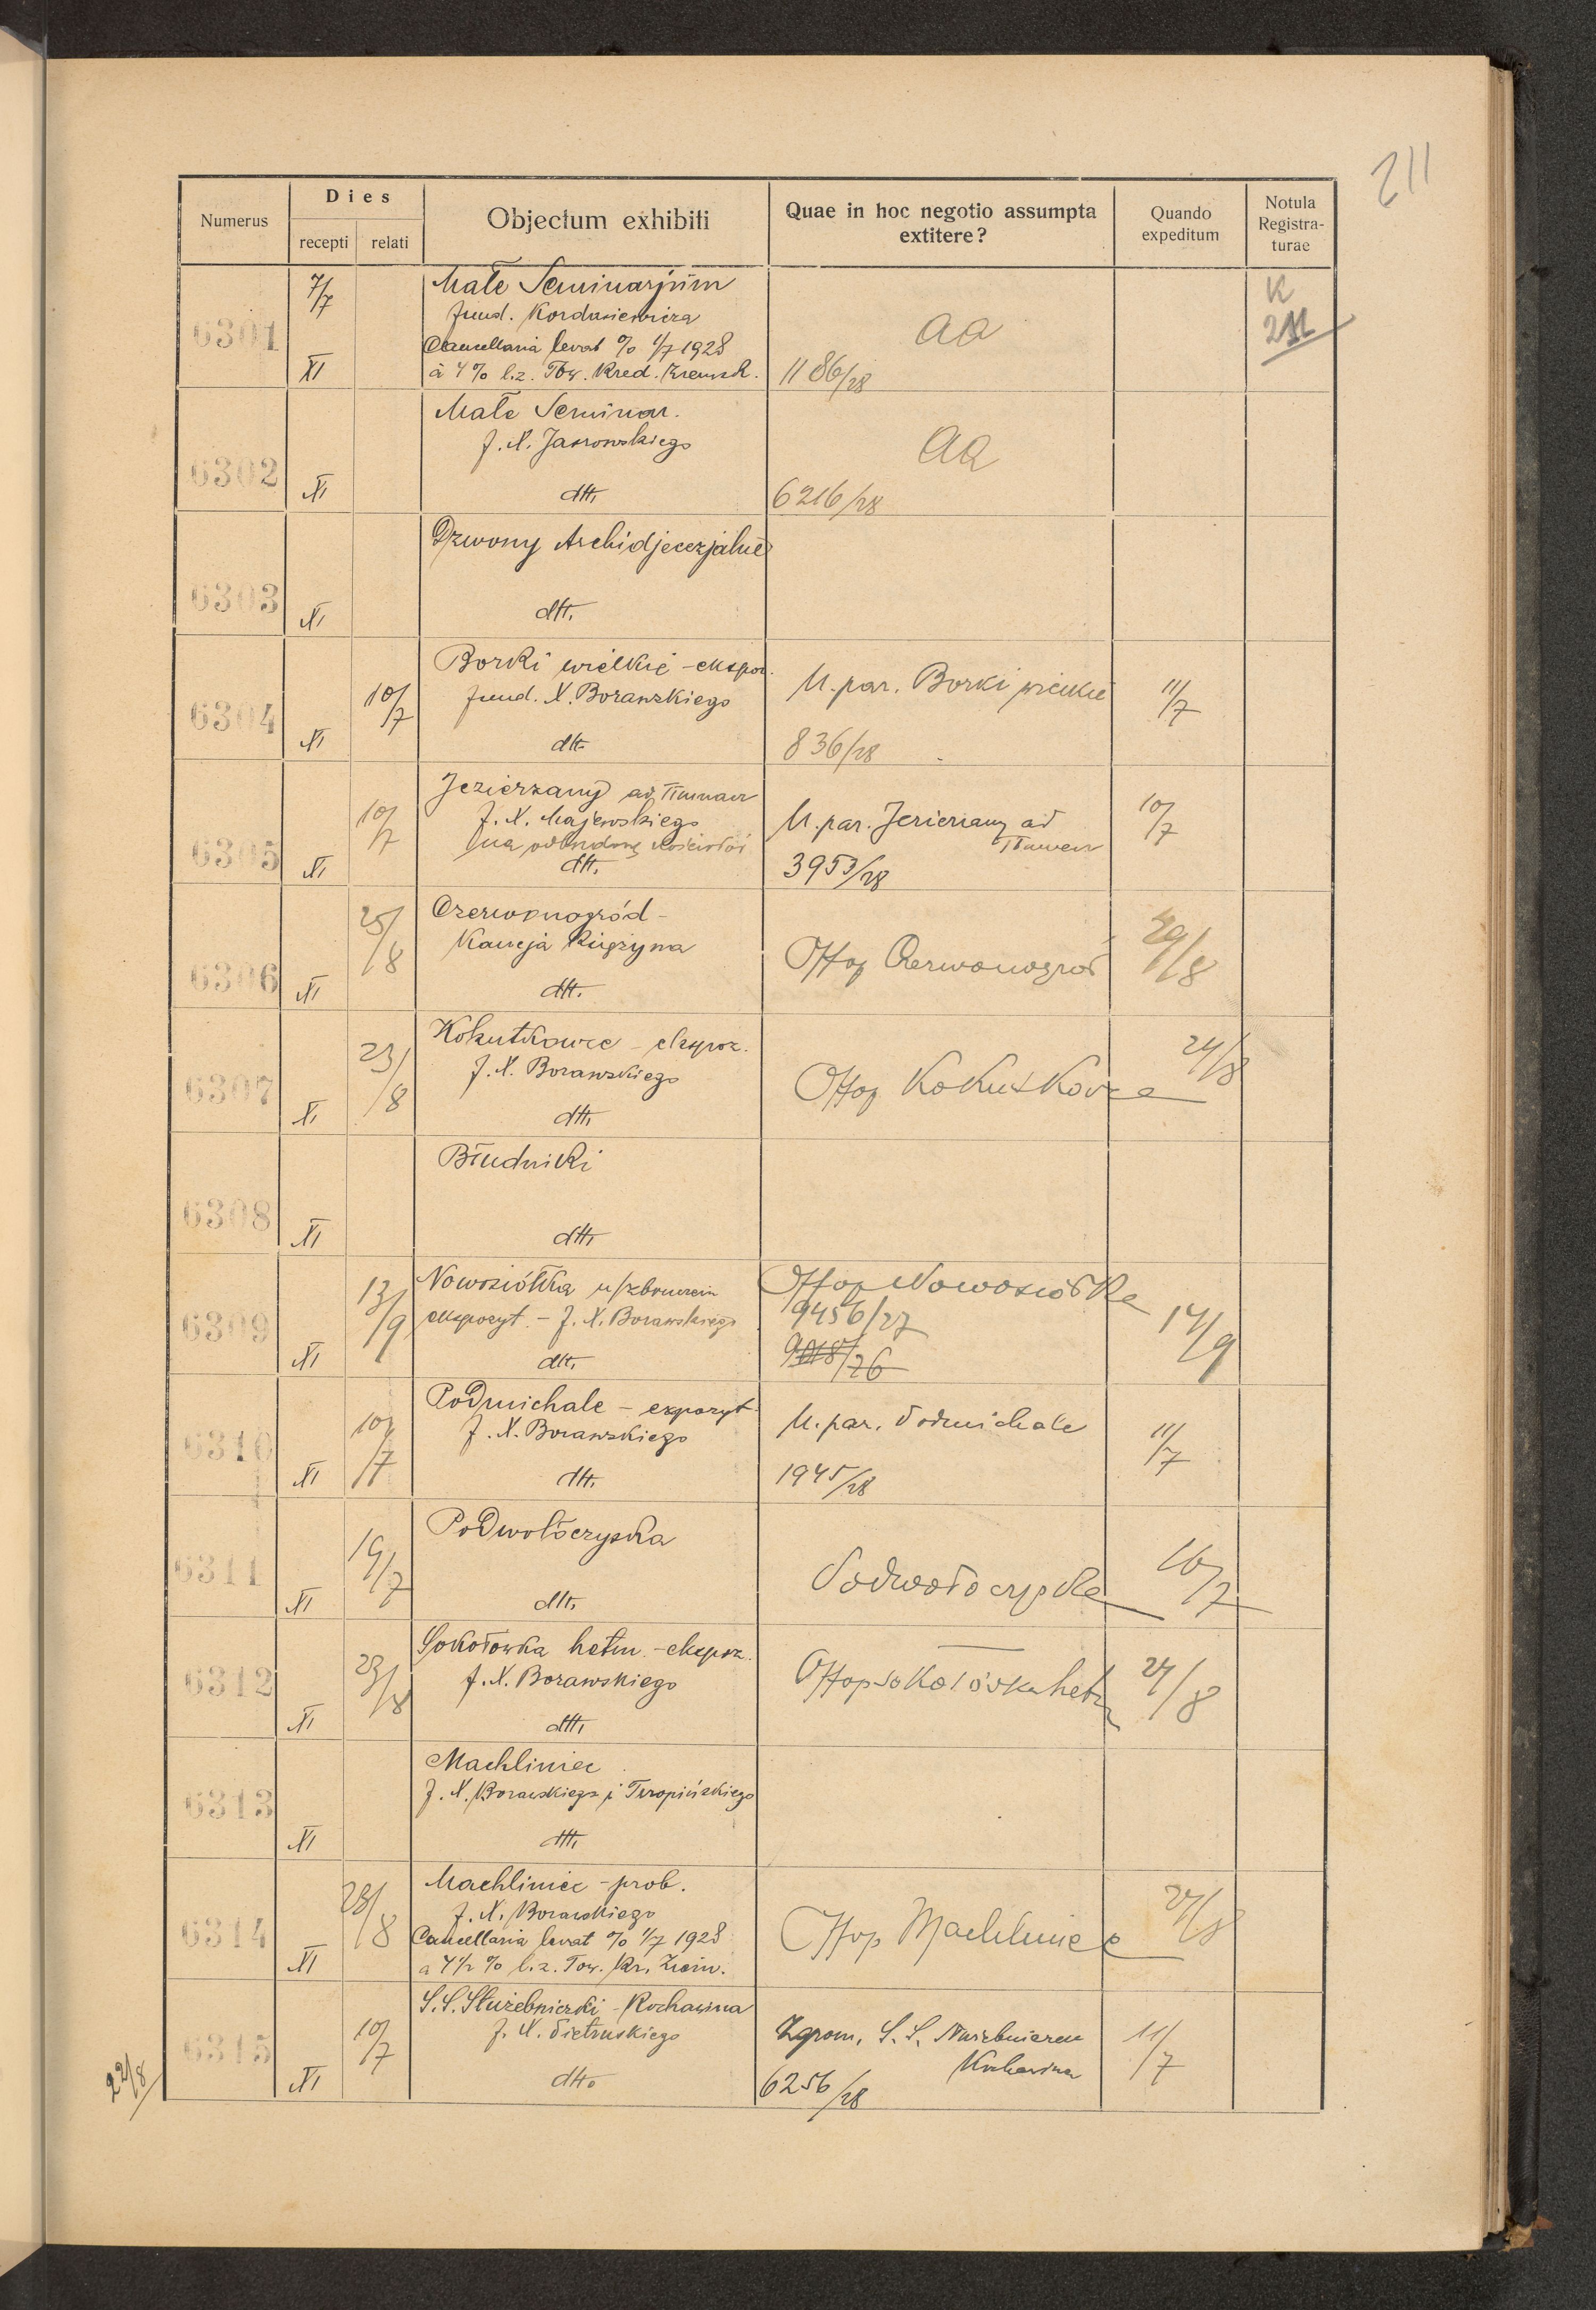 211
Numerus
Dies
recepti
relati
Objectum exhibiti
Quae in hoc negotio assumpta
extitere?
Quando
expeditum
Notula
Registra-
turae
6301
7/7
XI
Małe Seminarjum
fund. Kordasiewicza
Cancellaria levat % 1/7 1928
à 4% l.z. Tow. Kred. Ziemsk.
aa
1186/28
K
211
6302
XI
Małe Seminar.
f. X. Jasrowskiego
dtt.
aa
6216/28
6303
XI
Dzwony Archidjecezjalne
dtt.
6304
XI
10/7
Borki wielkie - ekspoz.
fund. X. Borawskiego
dtt.
U. par. Borki wielkie
836/28
11/7
6305
XI
10/7
Jezierzany ad Tłumacz
f. X. Majewskiego
na odbudowę kościoła
dtt.
U. par. Jezierzany ad
Tłumacz
3953/28
10/7
6306
XI
25/8
Czerwonogród -
Kaucja
dtt.
Offop Czerwonogród
29/8
6307
XI
23/8
Kokutkowce - ekspoz.
f. X. Borawskiego
dtt.
Offop Kokutkowce
24/8
6308
XI
Błudniki
dtt.
6309
XI
13/9
Nowosiółka n/Zbruczem
ekspozyt. - f. X. Borawskiego
dtt.
Offop Nowosiółka
9456/27
14/9
6310
XI
10/7
Podmichale - expozyt.
f. X. Borawskiego
dtt.
U. par. Podmichale
1945/28
11/7
6311
XI
19/7
Podwołoczyska
dtt.
Podwołoczyska
6312
XI
23/8
Sokołowka hetm. - ekspoz.
f. X. Borawskiego
dtt.
Offop Sokołówka hetm
24/8
6313
XI
Machliniec
f. X. Borawskiego i Teropińskiego
dtt.
6314
XI
23/8
Machliniec - prob.
f. X. Borawskiego
Cancellaria levat % 1/7 1928
a 4½ % l.z. Tow. Kr. Ziem.
Offop Machliniec
24/8
6315
XI
10/7
S.S. Służebniczki - Kochawina
f. X. Pietruskiego
dtto
Zgrom. S. S. Służebniczek
Kochawina
6256/28
11/7
22/8